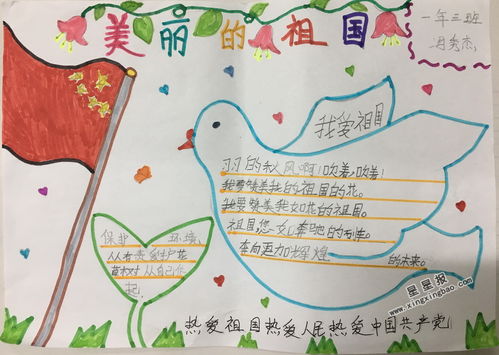 美丽的祖国
一年三班
冯秀杰
我爱祖国
羽的秋风啊!吹着,吹着!
我要赞美我的祖国的花。
我要赞美我如花的祖国。
祖国,您
奔向更加辉煌 的未来。
保护 环境,
人人有责 爱护花
草树 从自己做
起.
热爱祖国热爱人民热爱中国共产党
星星报
xingxingbao.com